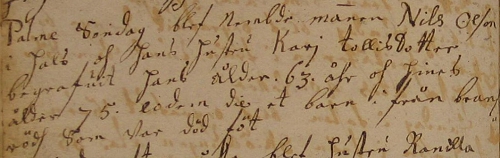 Palme Söndag blef Nembde manen Nils Olson
i hals och hans hustru Karj tollisdotter
begrafuit hans ålder. 63. åhr och hines
ålder 75. eodem die et barn i från bran
röd som var död föt
blef hustru Ranilla